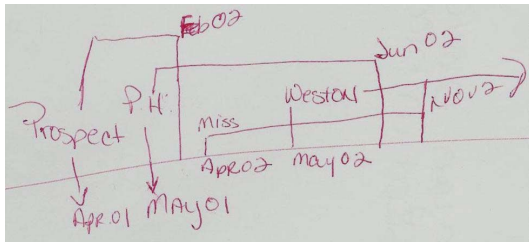 Feb 02
Jun 02
P.H.
Weston
Nov 02
Prospect
Miss
Apr 02
May 02
Apr. 01
MAy 01